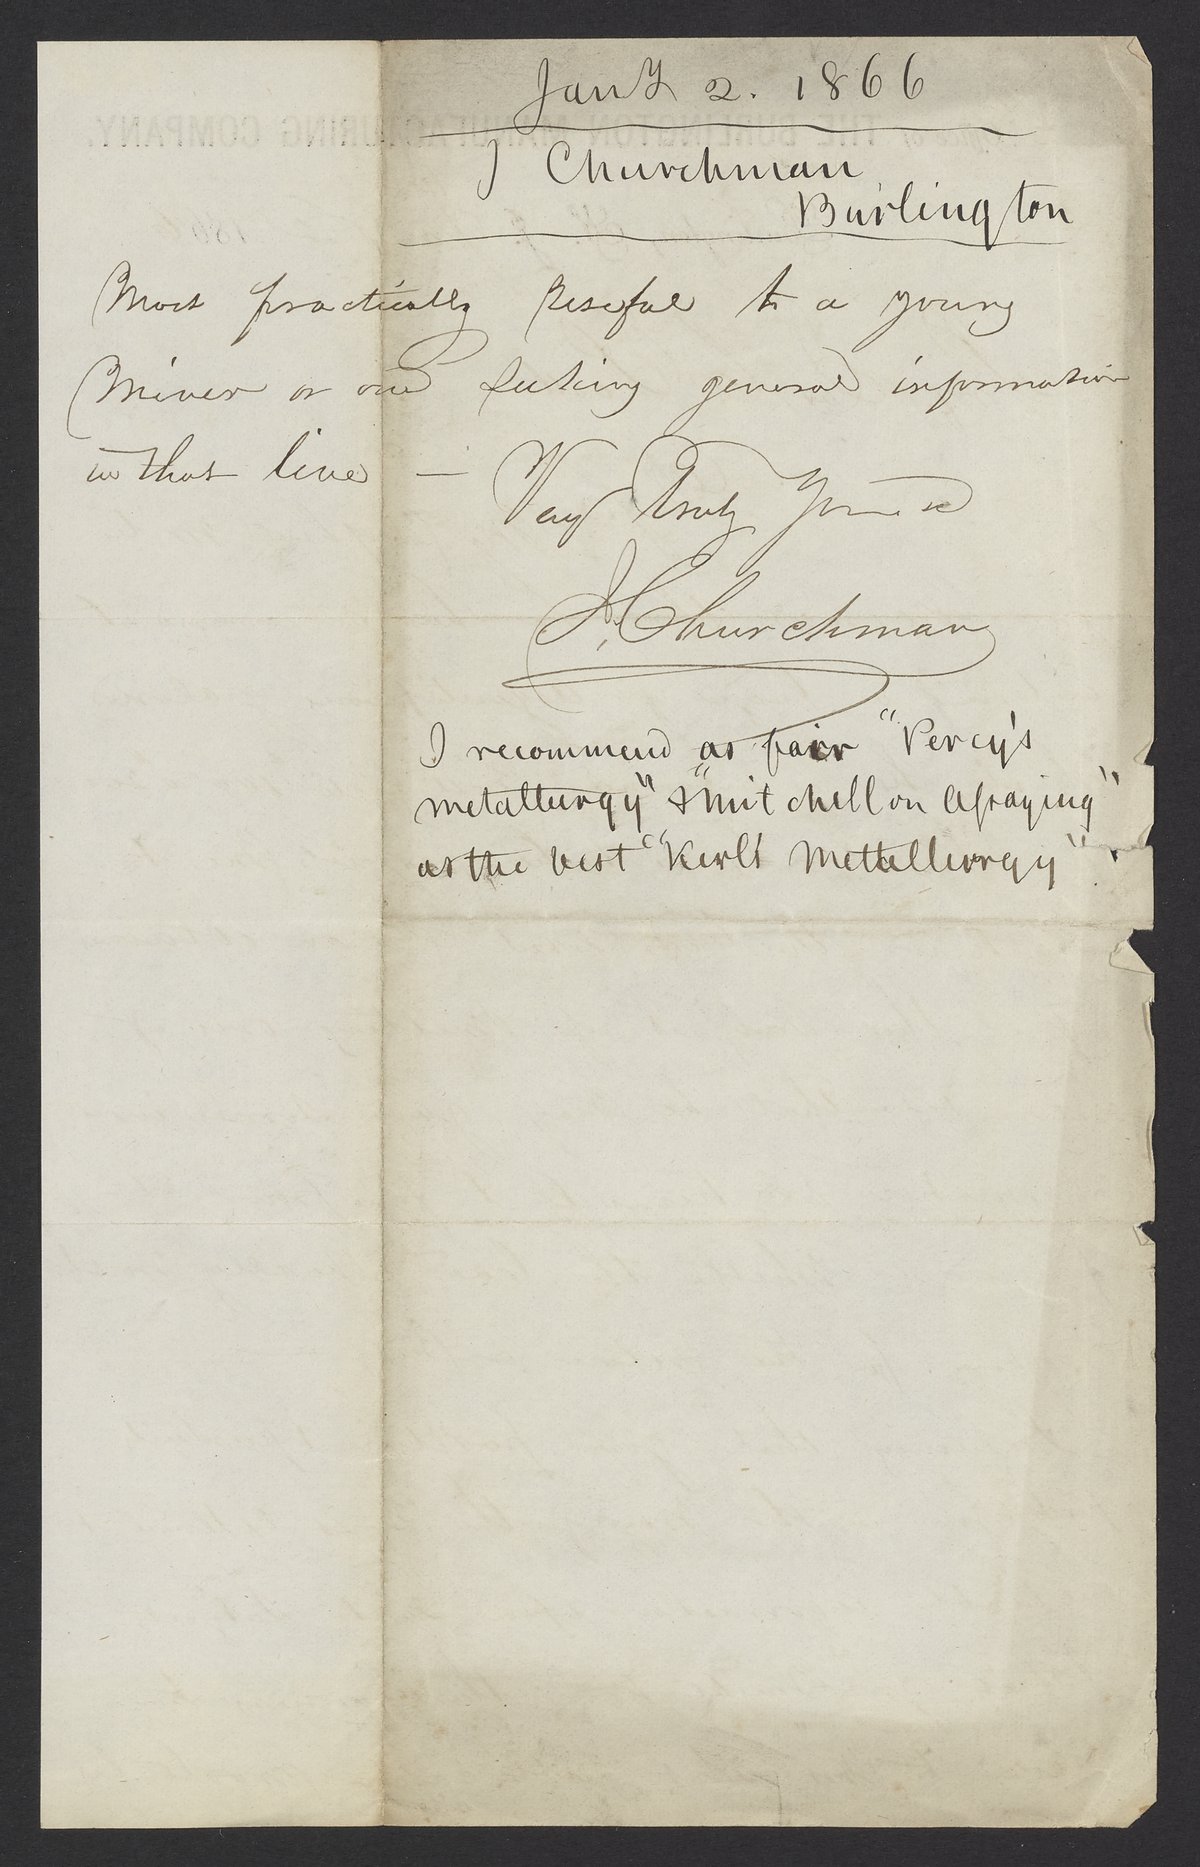 Jany 2. 1866
J Churchman
Burlington
Most practically useful to a young
Miner or one seeking general information
in that line —
Very Truly Yours
J. Churchman
I recommend as fair "Percy's
metallurgy" & "Mitchell on Assaying"
as the best "Kerl's Mettellurgy"
THE BURLINGTON MANUFACTURING COMPANY.